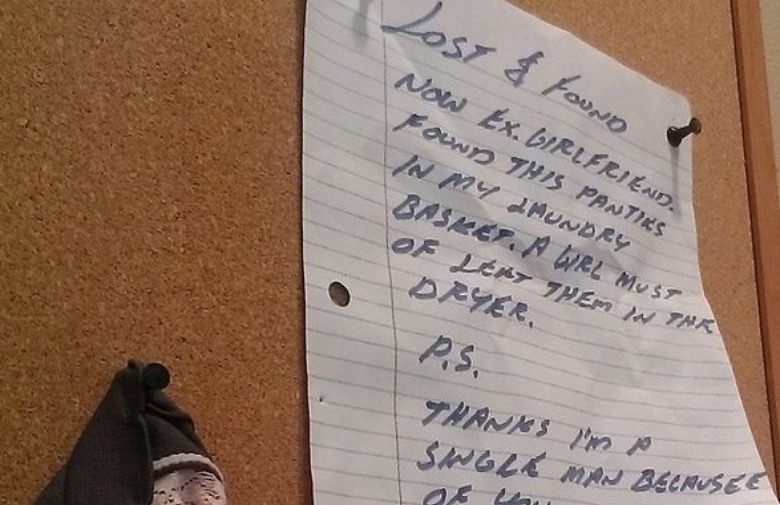 LOST & FOUND
NOW EX. GIRLFRIEND.
FOUND THIS PANTIES
IN MY LAUNDRY
BASKET. A GIRL MUST
OF LEFT THEM IN THE
DRYER.
P.S.
THANKS I'M A
SINGLE MAN BECAUSEE
OF